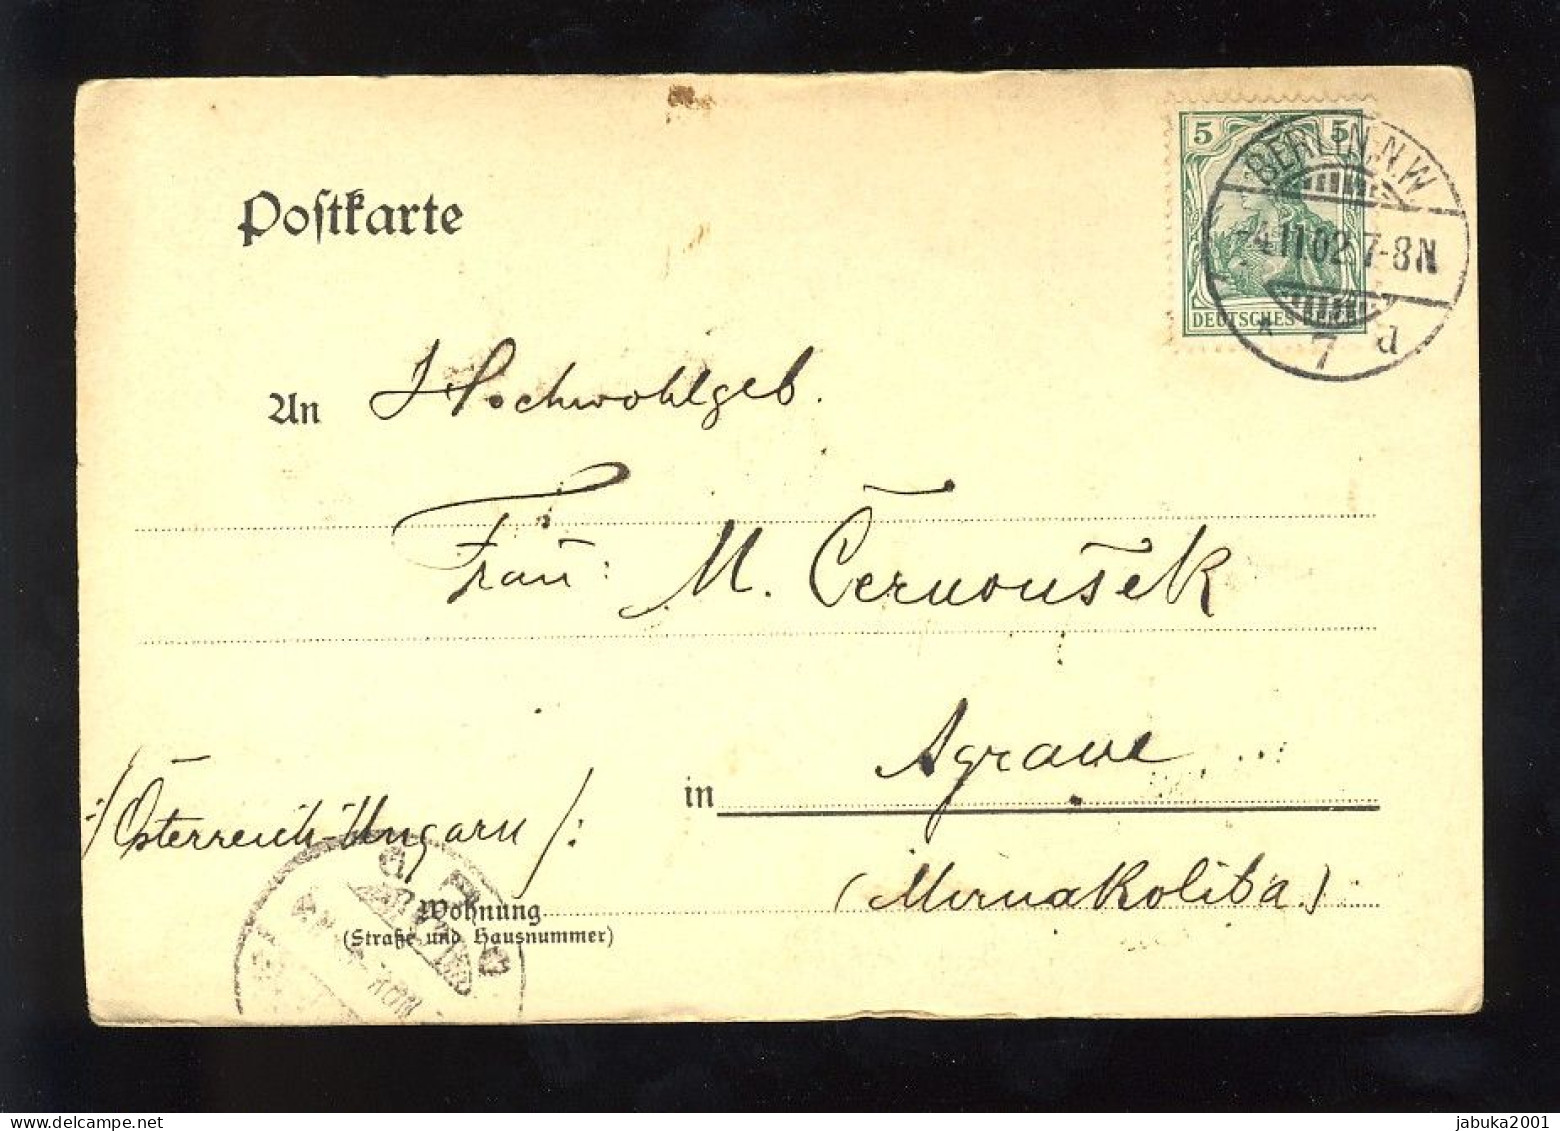 Postkarte
5 5
DEUTSCHES REICH
BERLIN, N.W
-4.11.02.7-8N
* 7 d
An Hochwohlgeb.
Frau: M. Černoušek
in Agrame
:/Österreich-Ungarn/:
(Mirnakoliba.)
Wohnung
(Straße und Hausnummer)
jabuka2001